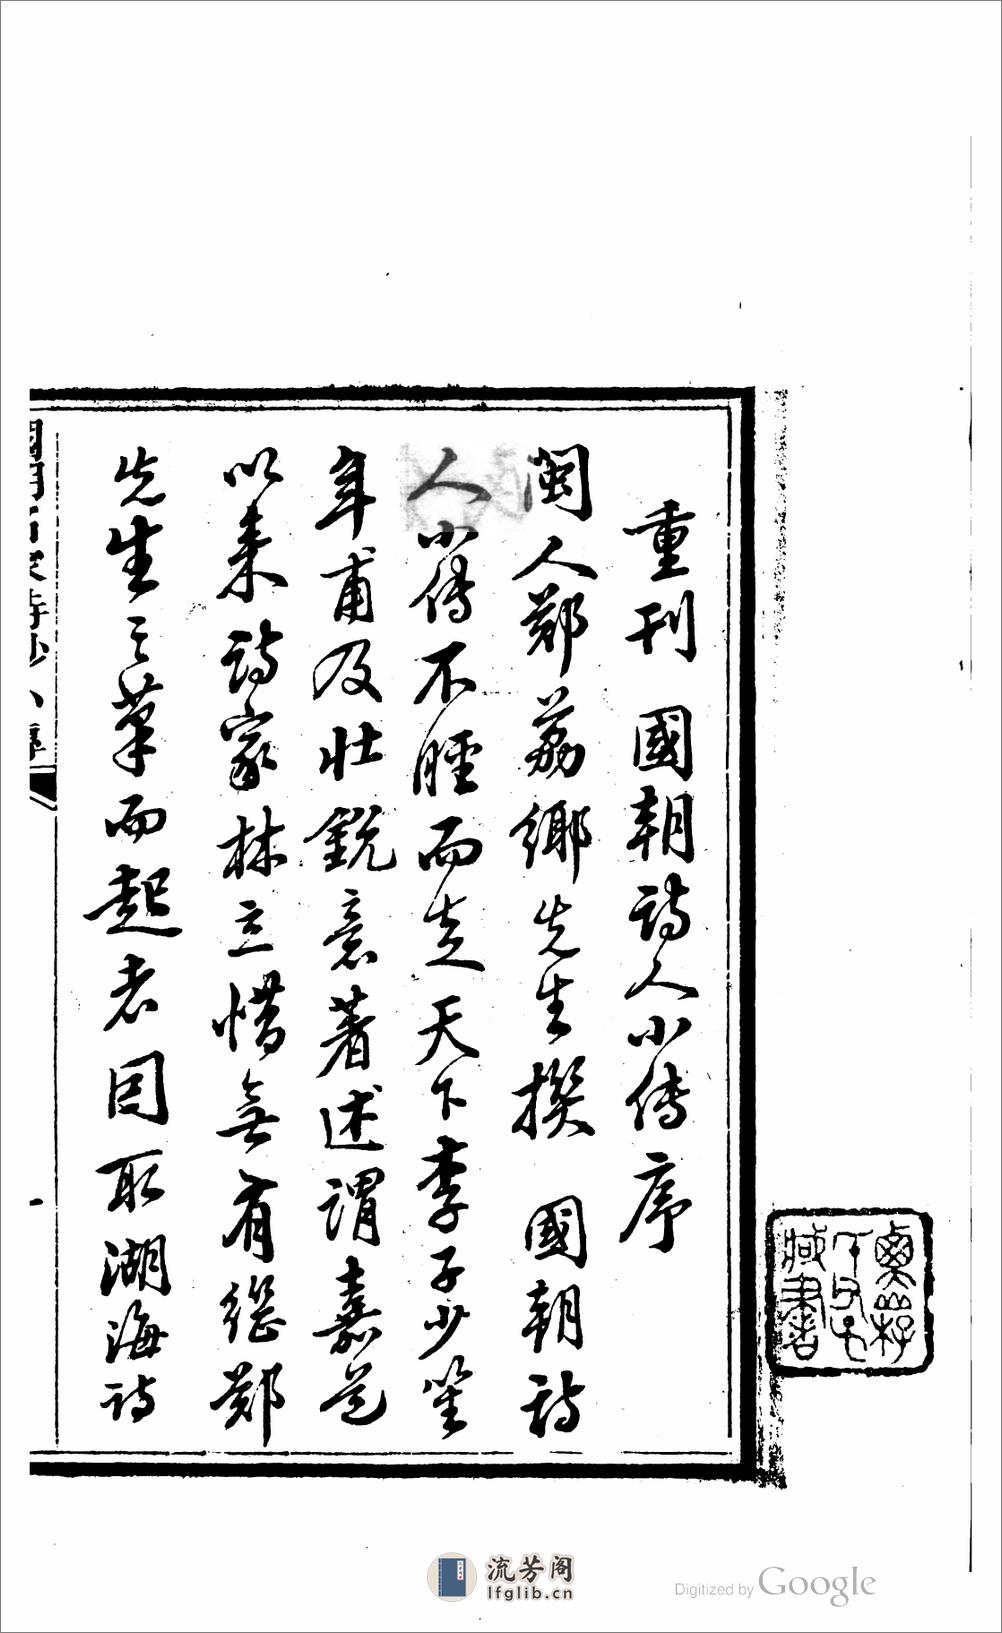 重刊 國朝詩人小傳序
閩人鄭荔鄉先生撰 國朝詩
人小傳不脛而走天下李子少笙
年甫及壯銳意著述謂嘉道
以來詩家林立惜無有繼鄭
先生之筆而起者因取湖海詩
國朝名家詩鈔小傳
藏書
流芳阁
lfglib.cn
Digitized by Google